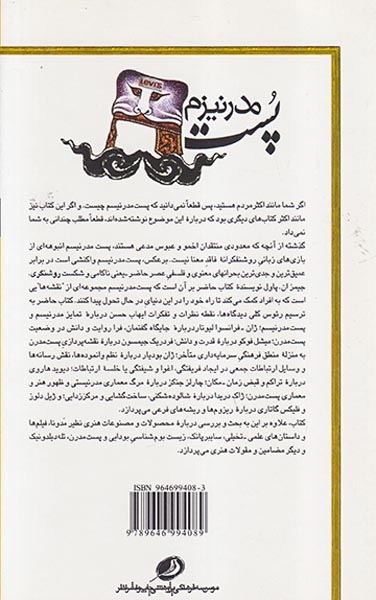 LEVI'S
پُست مدرنیزم
اگر شما مانند اکثر مردم هستید، پس قطعاً نمی‌دانید که پست‌مدرنیسم چیست. و اگر این کتاب نیز
مانند اکثر کتاب‌های دیگری بود که دربارهٔ این موضوع نوشته شده‌اند، قطعاً مطلب چندانی به شما
نمی‌داد.
گذشته از آنچه که معدودی منتقدان اخمو و عبوس مدعی هستند، پست مدرنیسم انبوهه‌ای از
بازی‌های زبانیِ روشنفکرانهٔ فاقد معنا نیست. برعکس، پست‌مدرنیسم واکنشی است در برابر
عمیق‌ترین و جدی‌ترین بحرانهای معنوی و فلسفی عصر حاضر ـ یعنی ناکامی و شکست روشنگری.
جیمز ان. پاول نویسندهٔ کتاب حاضر بر آن است که پست‌مدرنیسم مجموعه‌ای از "نقشه‌ها"یی
است که به افراد کمک می‌کند تا راه خود را در این دنیای در حال تحول پیدا کنند. کتاب حاضر به
ترسیم رئوس کلی دیدگاه‌ها، نقطه نظرات و تفکرات ایهاب حسن دربارهٔ تمایز مدرنیسم و
پست‌مدرنیسم؛ ژان ـ فرانسوا لیوتار دربارهٔ جایگاه گفتمان، فرا روایت و دانش در وضعیت
پست‌مدرن؛ میشل فوکو دربارهٔ قدرت و دانش؛ فردریک جیمسون دربارهٔ نقشه‌پردازی پست‌مدرن
به منزله منطق فرهنگی سرمایه‌داری متأخر؛ ژان بودیار دربارهٔ نظم وانموده‌ها، نقش رسانه‌ها
و وسایل ارتباطات جمعی در ایجاد فریفتگی، اغوا و شیفتگی یا خلسهٔ ارتباطات؛ دیوید هاروی
دربارهٔ تراکم و قبض زمان ـ مکان؛ چارلز جنکز دربارهٔ مرگ معماری مدرنیستی و ظهور هنر و
معماری پست‌مدرن؛ ژاک دریدا دربارهٔ شالوده‌شکنی، ساخت‌گشایی و مرکززدایی؛ و ژیل دلوز
و فلیکس گاتاری دربارهٔ ریزوم‌ها و ریشه‌های فرعی می‌پردازد.
کتاب، علاوه بر این به بحث و بررسی دربارهٔ محصولات و مصنوعات هنری نظیر مَدونا، فیلم‌ها
و داستان‌های علمی ـ تخیلی، سایبرپانک، زیست بوم‌شناسی بودایی و پست‌مدرن، تله‌دیلدونیک
و دیگر مضامین و مقولات هنری می‌پردازد.
ISBN 964699408-3
9 789646 994089